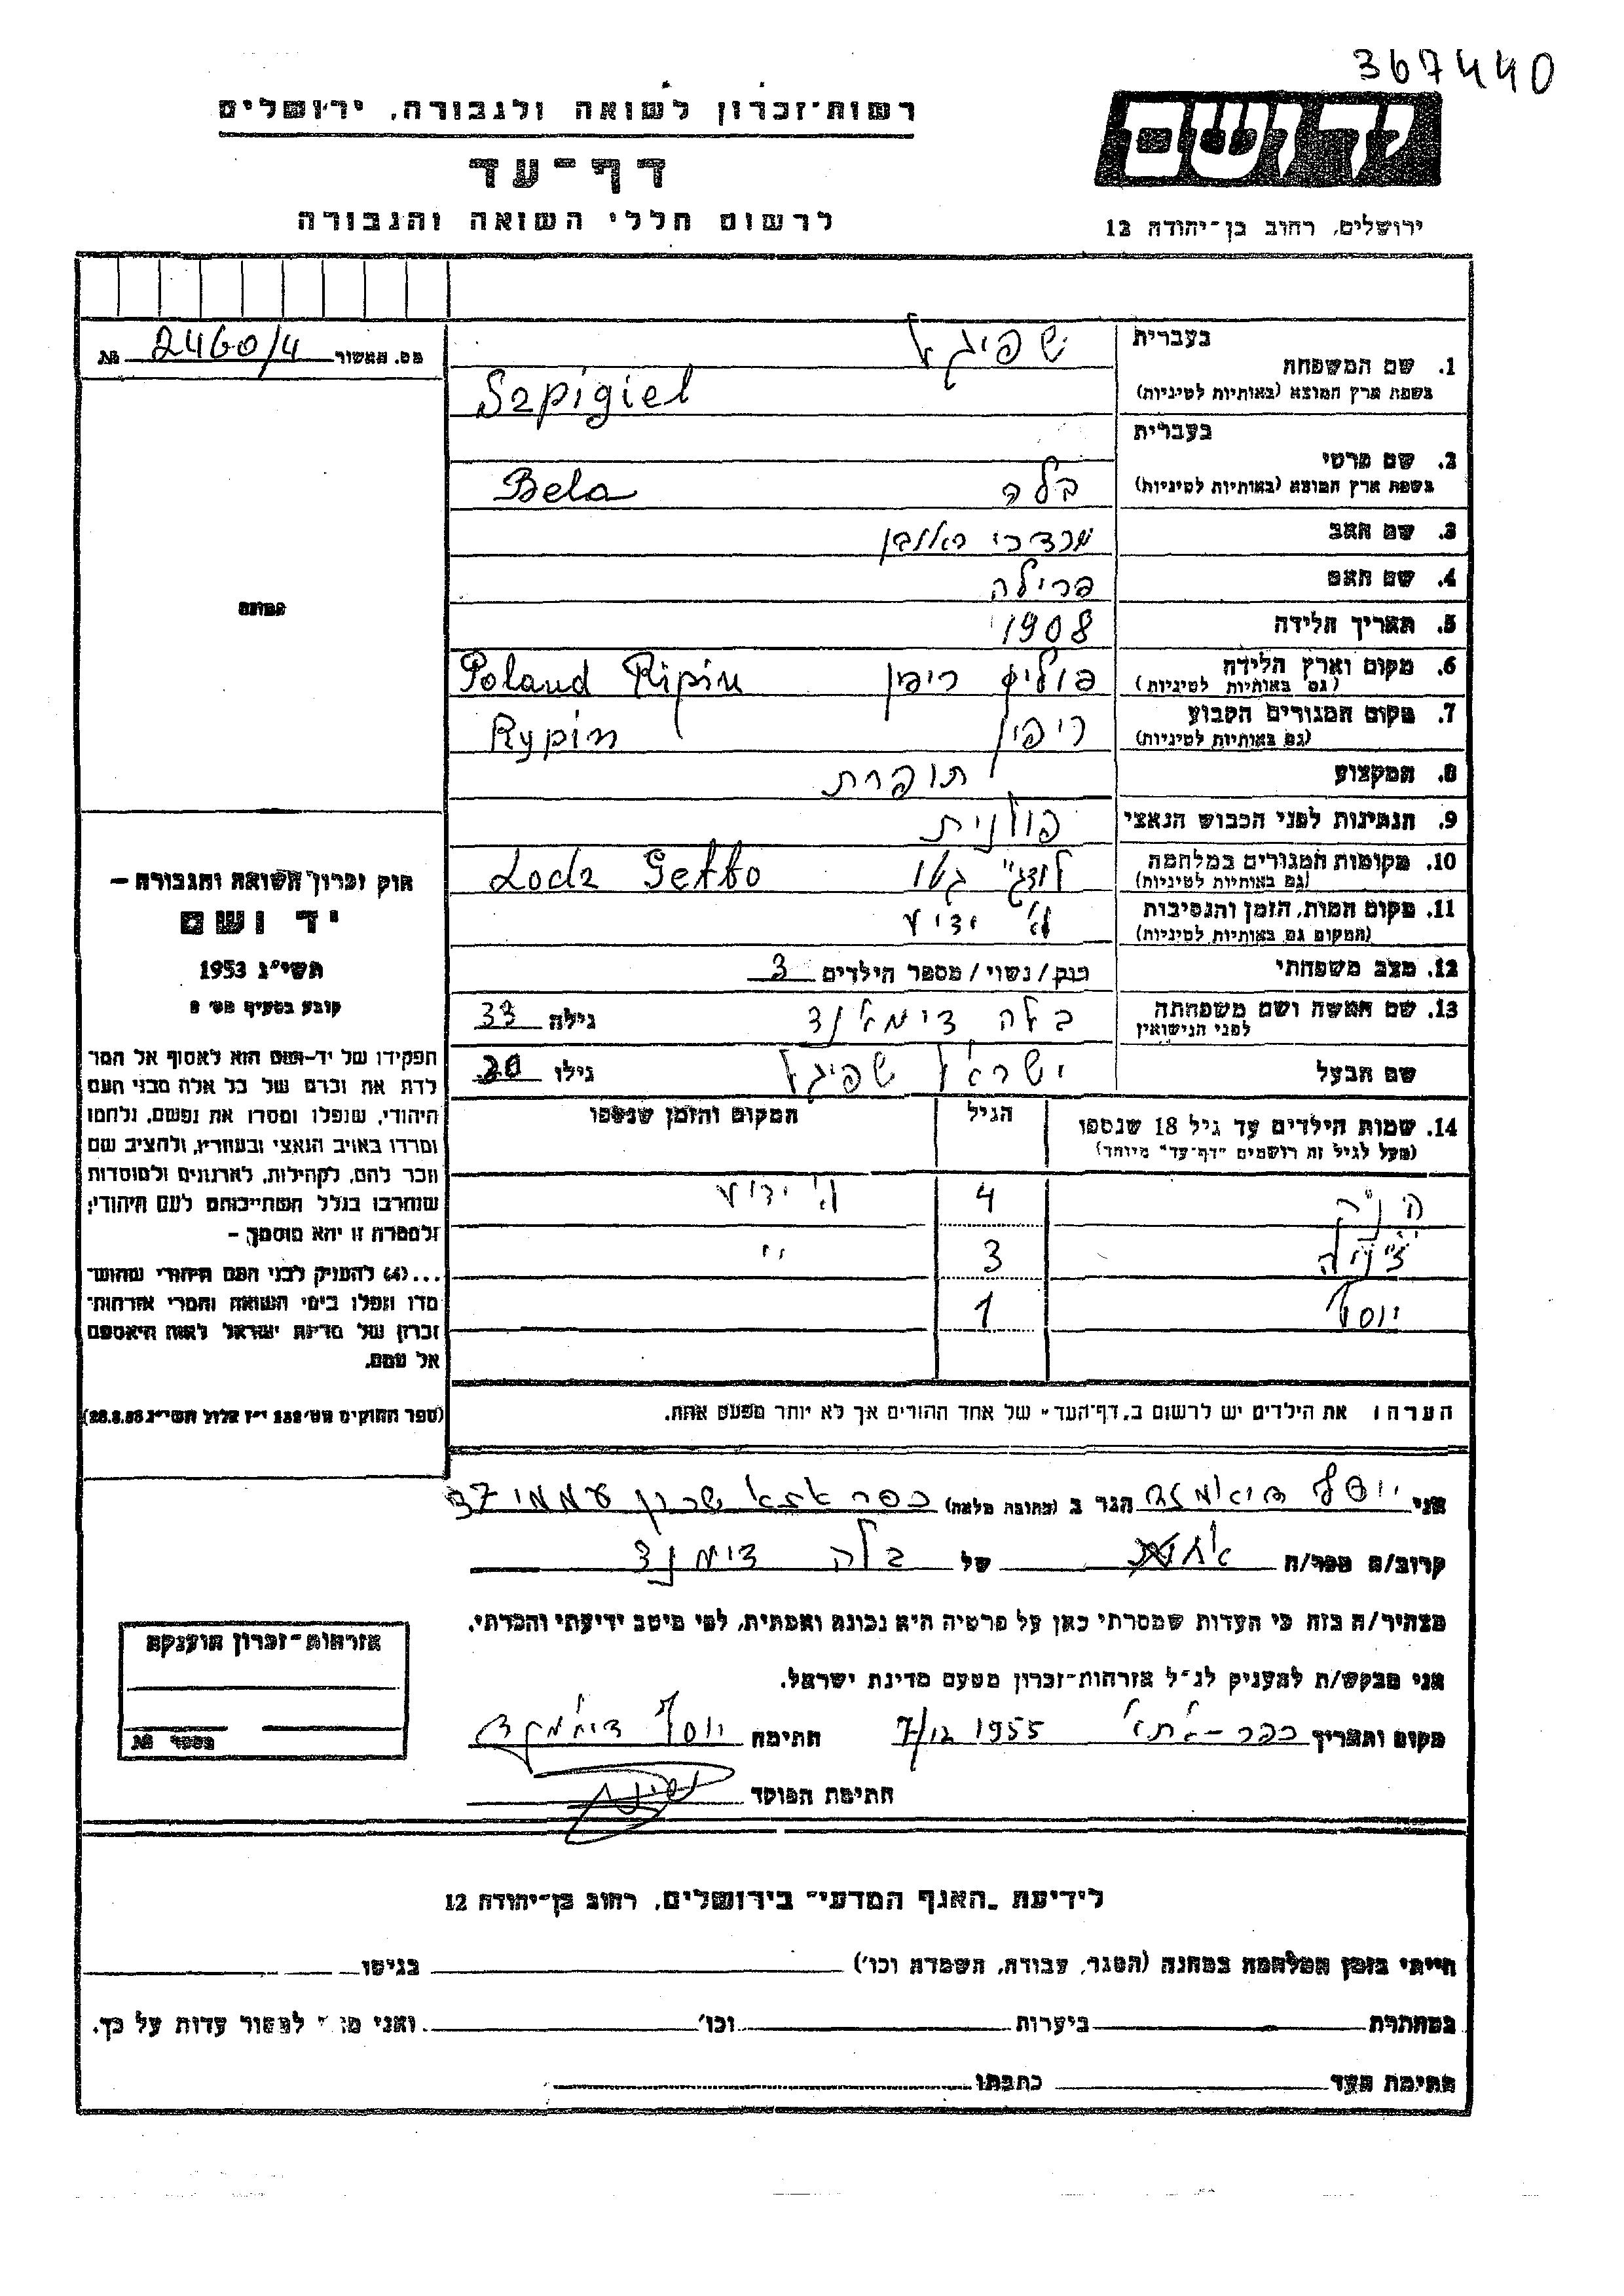 367440
רשות-זכרון לשואה ולגבורה, ירושלים
דף-עד
לרשום חללי השואה והגבורה
יד ושם
ירושלים, רחוב בן-יהודה 12
מס. האשור 2460/4 №
תמונה
חוק זכרון השואה והגבורה —
יד ושם
תשי"ג 1953
קובע בסעיף מס' 2
תפקידו של יד-ושם הוא לאסוף אל המו
לדת את זכרם של כל אלה מבני העם
היהודי, שנפלו ומסרו את נפשם, נלחמו
ומרדו באויב הנאצי ובעוזריו, ולהציב שם
וזכר להם, לקהילות, לארגונים ולמוסדות
שנחרבו בגלל השתייכותם לעם היהודי;
ולמטרה זו יהא מוסמך —
...(4) להעניק לבני העם היהודי שהוש
מדו ונפלו בימי השואה והמרי אזרחות-
זכרון של מדינת ישראל לאות היאספם
אל עמם.
(ספר החוקים מס' 132 י"ז אלול תשי"ג 28.8.53)
בעברית שפיגל
1. שם המשפחה
בשפת ארץ המוצא (באותיות לטיניות) Szpigiel
בעברית
2. שם פרטי
בשפת ארץ המוצא (באותיות לטיניות) בלה Bela
3. שם האב מרדכי
4. שם האם פרילה
5. תאריך הלידה 1908
6. מקום וארץ הלידה פולין ריפין Poland Ripin
(גם באותיות לטיניות)
7. מקום המגורים הקבוע ריפין Rypin
(גם באותיות לטיניות)
8. המקצוע תופרת
9. הנתינות לפני הכבוש הנאצי פולנית
10. מקומות המגורים במלחמה לודג' גטו Lodz Getto
(גם באותיות לטיניות)
11. מקום המות, הזמן והנסיבות לא ידוע
(המקום גם באותיות לטיניות)
12. מצב משפחתי רווק / נשוי / מספר הילדים 3
13. שם האשה ושם משפחתה בלה דימאנד גילה 33
לפני הנישואין
שם הבעל ישראל שפיגל גילו
14. שמות הילדים עד גיל 18 שנספו הגיל המקום והזמן שנספו
(מעל לגיל זה רושמים "דף-עד" מיוחד)
4 לא ידוע
3 "
יוסף 1
הערה: את הילדים יש לרשום ב"דף-העד" של אחד ההורים אך לא יותר מפעם אחת.
אני יוסף דיאמנד הגר ב (כתובת מלאה) כפר אתא שכון עממי 37
קרוב/ה מפר/ה אח של בלה דימנד
מצהיר/ה בזה כי העדות שמסרתי כאן על פרטיה היא נכונה ואמתית, לפי מיטב ידיעתי והכרתי.
אני מבקש/ת להעניק לנ"ל אזרחות-זכרון מטעם מדינת ישראל.
מקום ותאריך כפר-אתא 7/12 1955 חתימה יוסף דיאמנד
חתימת הפוקד
אזרחות-זכרון הוענקה
מספר №
לידיעת "האגף המדעי" בירושלים, רחוב בן-יהודה 12
הייתי בזמן המלחמה במחנה (הסגר, עבודה, השמדה וכו') בגיטו
במחתרת ביערות וכו' ואני למסור עדות על כך.
חתימת העד כתבתו